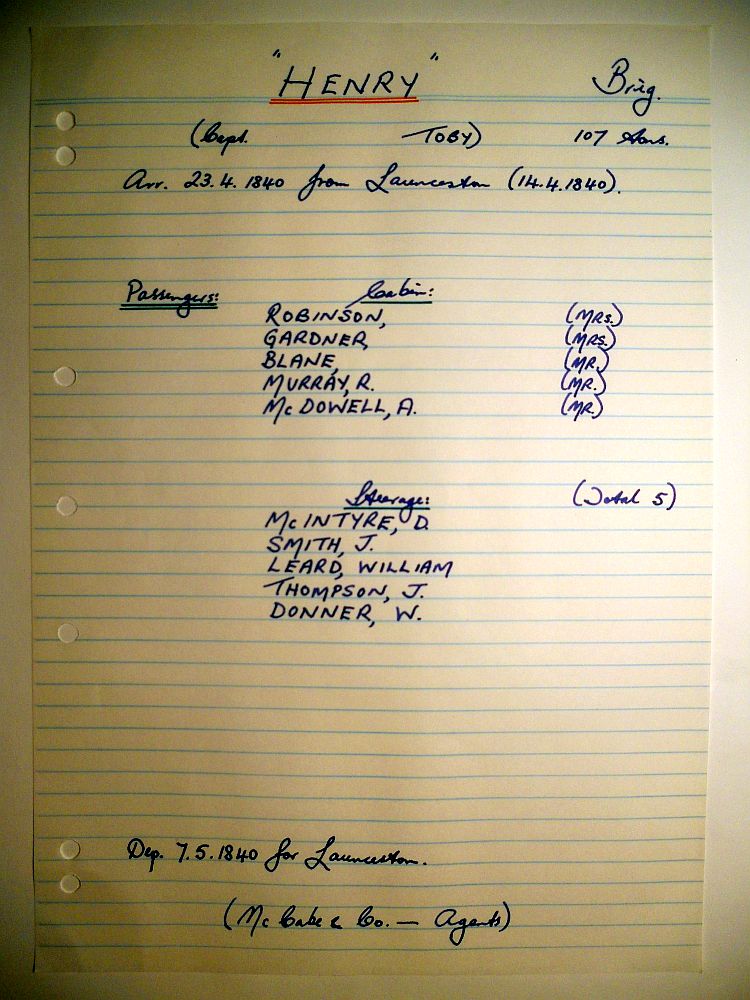 "HENRY" Brig.
(Capt. TOBY) 107 tons.
Arr. 23.4.1840 from Launceston (14.4.1840).
Passengers: Cabin:
ROBINSON, (MRS.)
GARDNER, (MRS.)
BLANE, (MR.)
MURRAY, R. (MR.)
McDOWELL, A. (MR.)
Steerage: (Total 5)
McINTYRE, D.
SMITH, J.
LEARD, WILLIAM
THOMPSON, J.
DONNER, W.
Dep. 7.5.1840 for Launceston.
(McCabe & Co. — Agents)